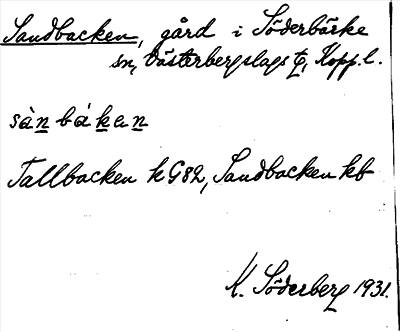 Sandbacken, gård i Söderbärke
sn, Västerbergslags tg, Kopp. l.
sànbákan
Tallbacken k G82, Sandbacken kb
K. Söderberg 1931.